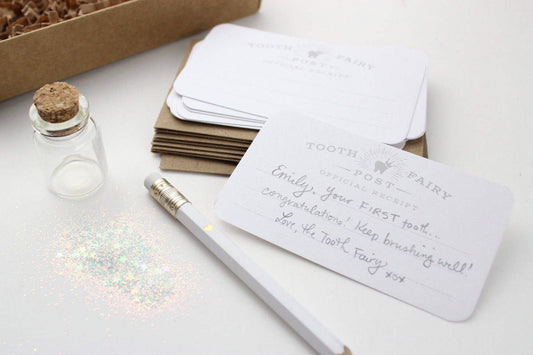 TOOTH FAIRY
POST
OFFICIAL RECEIPT
TOOTH FAIRY
POST
OFFICIAL RECEIPT
Emily, your FIRST tooth...
congratulations! Keep brushing well!
Love, the Tooth Fairy xoxo